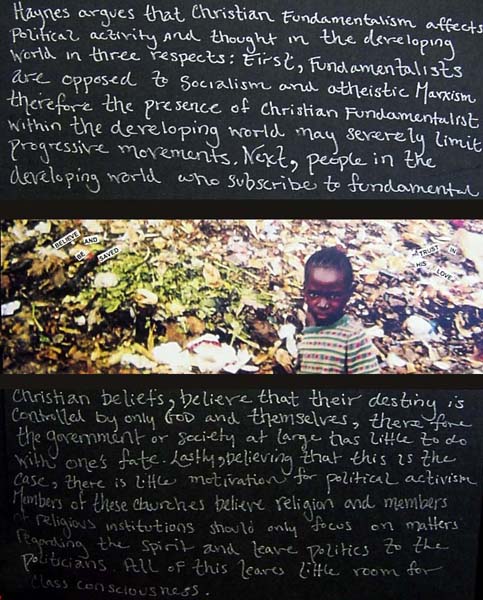 Haynes argues that Christian Fundamentalism affects
Political activity and thought in the developing
World in three respects: First, Fundamentalists
are opposed to Socialism and atheistic Marxism
therefore the presence of Christian Fundamentalist
within the developing world may severely limit
progressive movements. Next, people in the
developing world who subscribe to fundamental
BELIEVE
AND
BE SAVED
TRUST IN
HIS LOVE
Christian beliefs, believe that their destiny is
controlled by only GOD and themselves, there fore
the government or society at large has little to do
with one's fate. Lastly, believing that this is the
case, there is little motivation for political activism
Members of these churches believe religion and members
of religious institutions should only focus on matters
regarding the spirit and leave politics to the
Politicians. All of this leaves little room for
class consciousness.